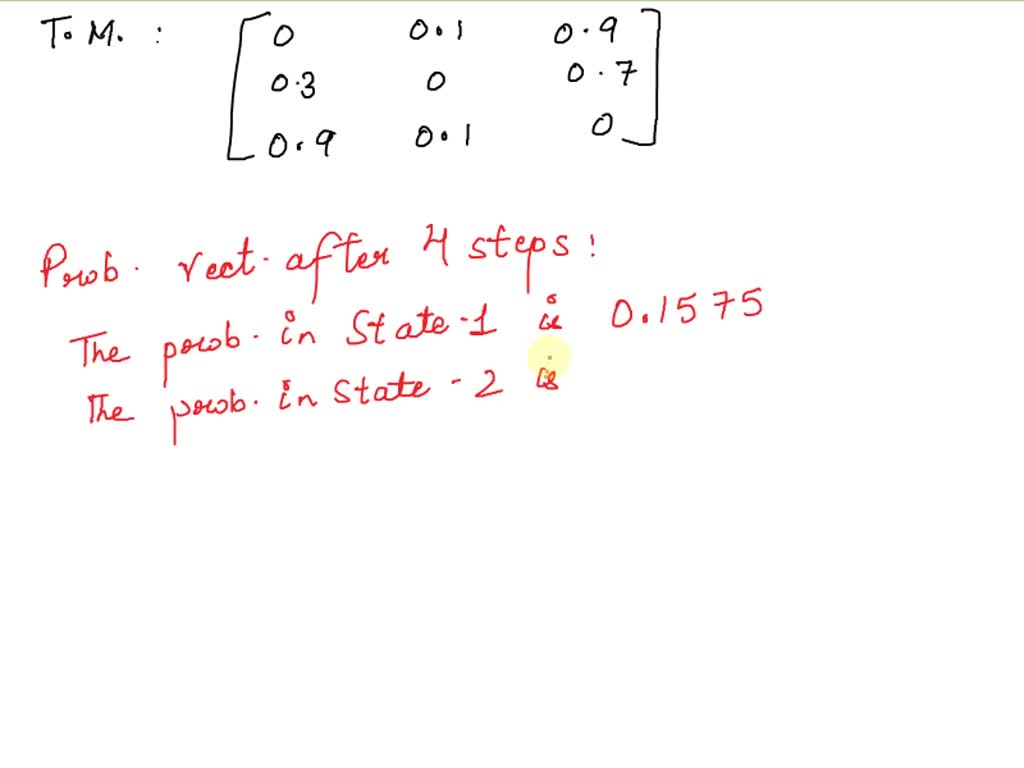 T. M. :
0 0.1 0.9
0.3 0 0.7
0.9 0.1 0
Prob. vect. after 4 steps :
The prob. in State-1 is 0.1575
The prob. in State-2 is